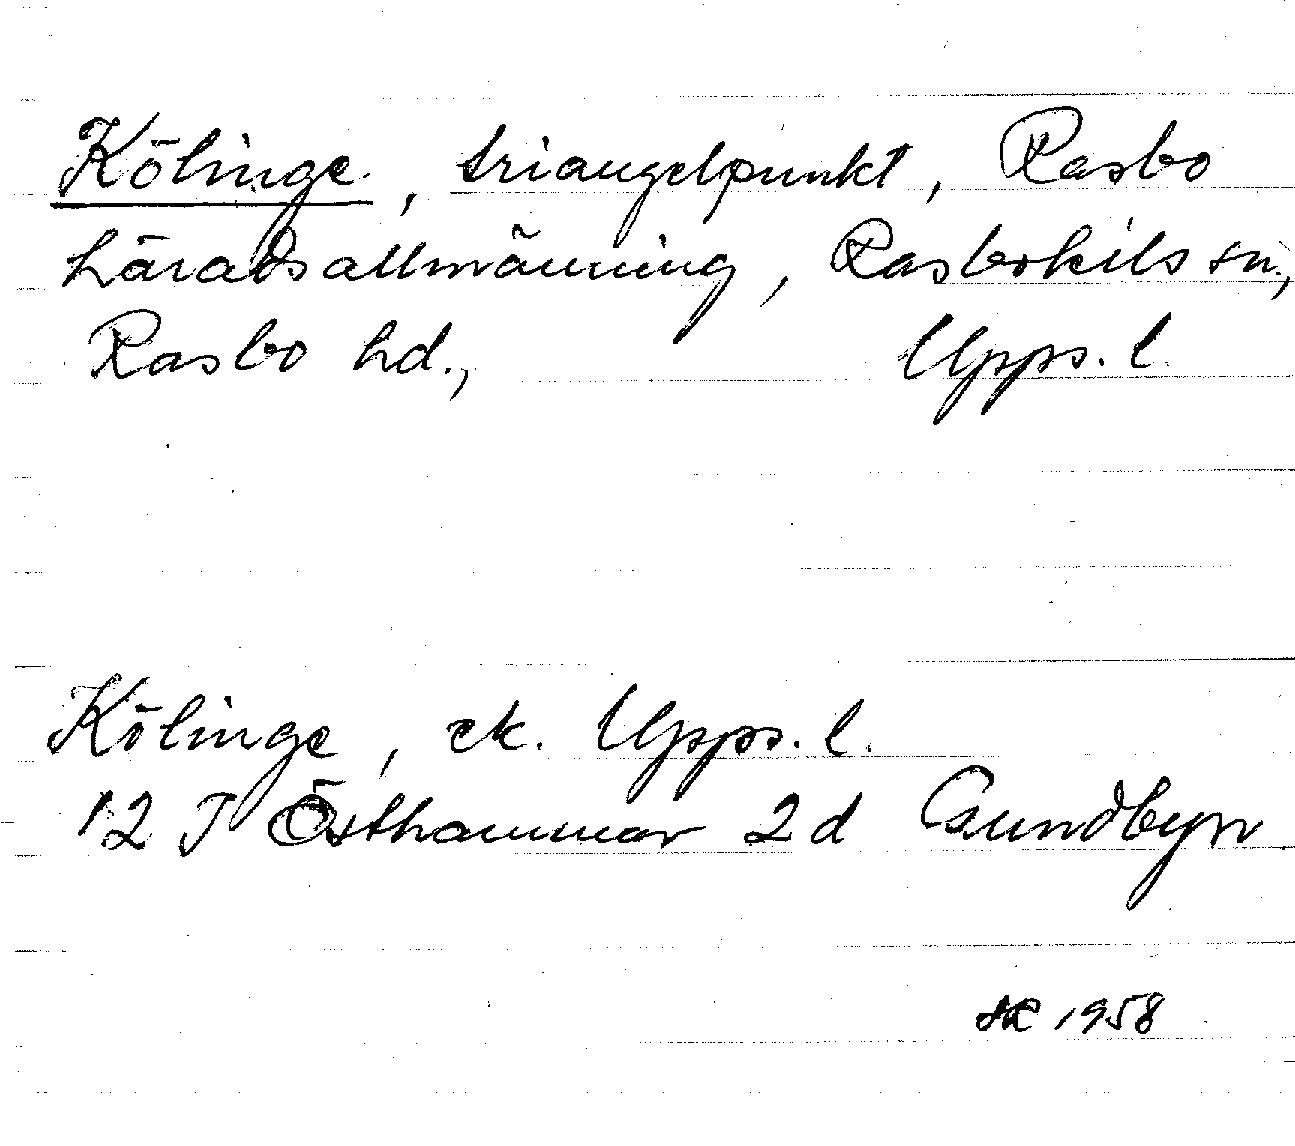 Kölinge, triangelpunkt, Rasbo
häradsallmänning, Rasbokils sn.,
Rasbo hd., Upps. l.
Kölinge, ek. Upps. l.
12 I Östhammar 2d Gundbyn
1958